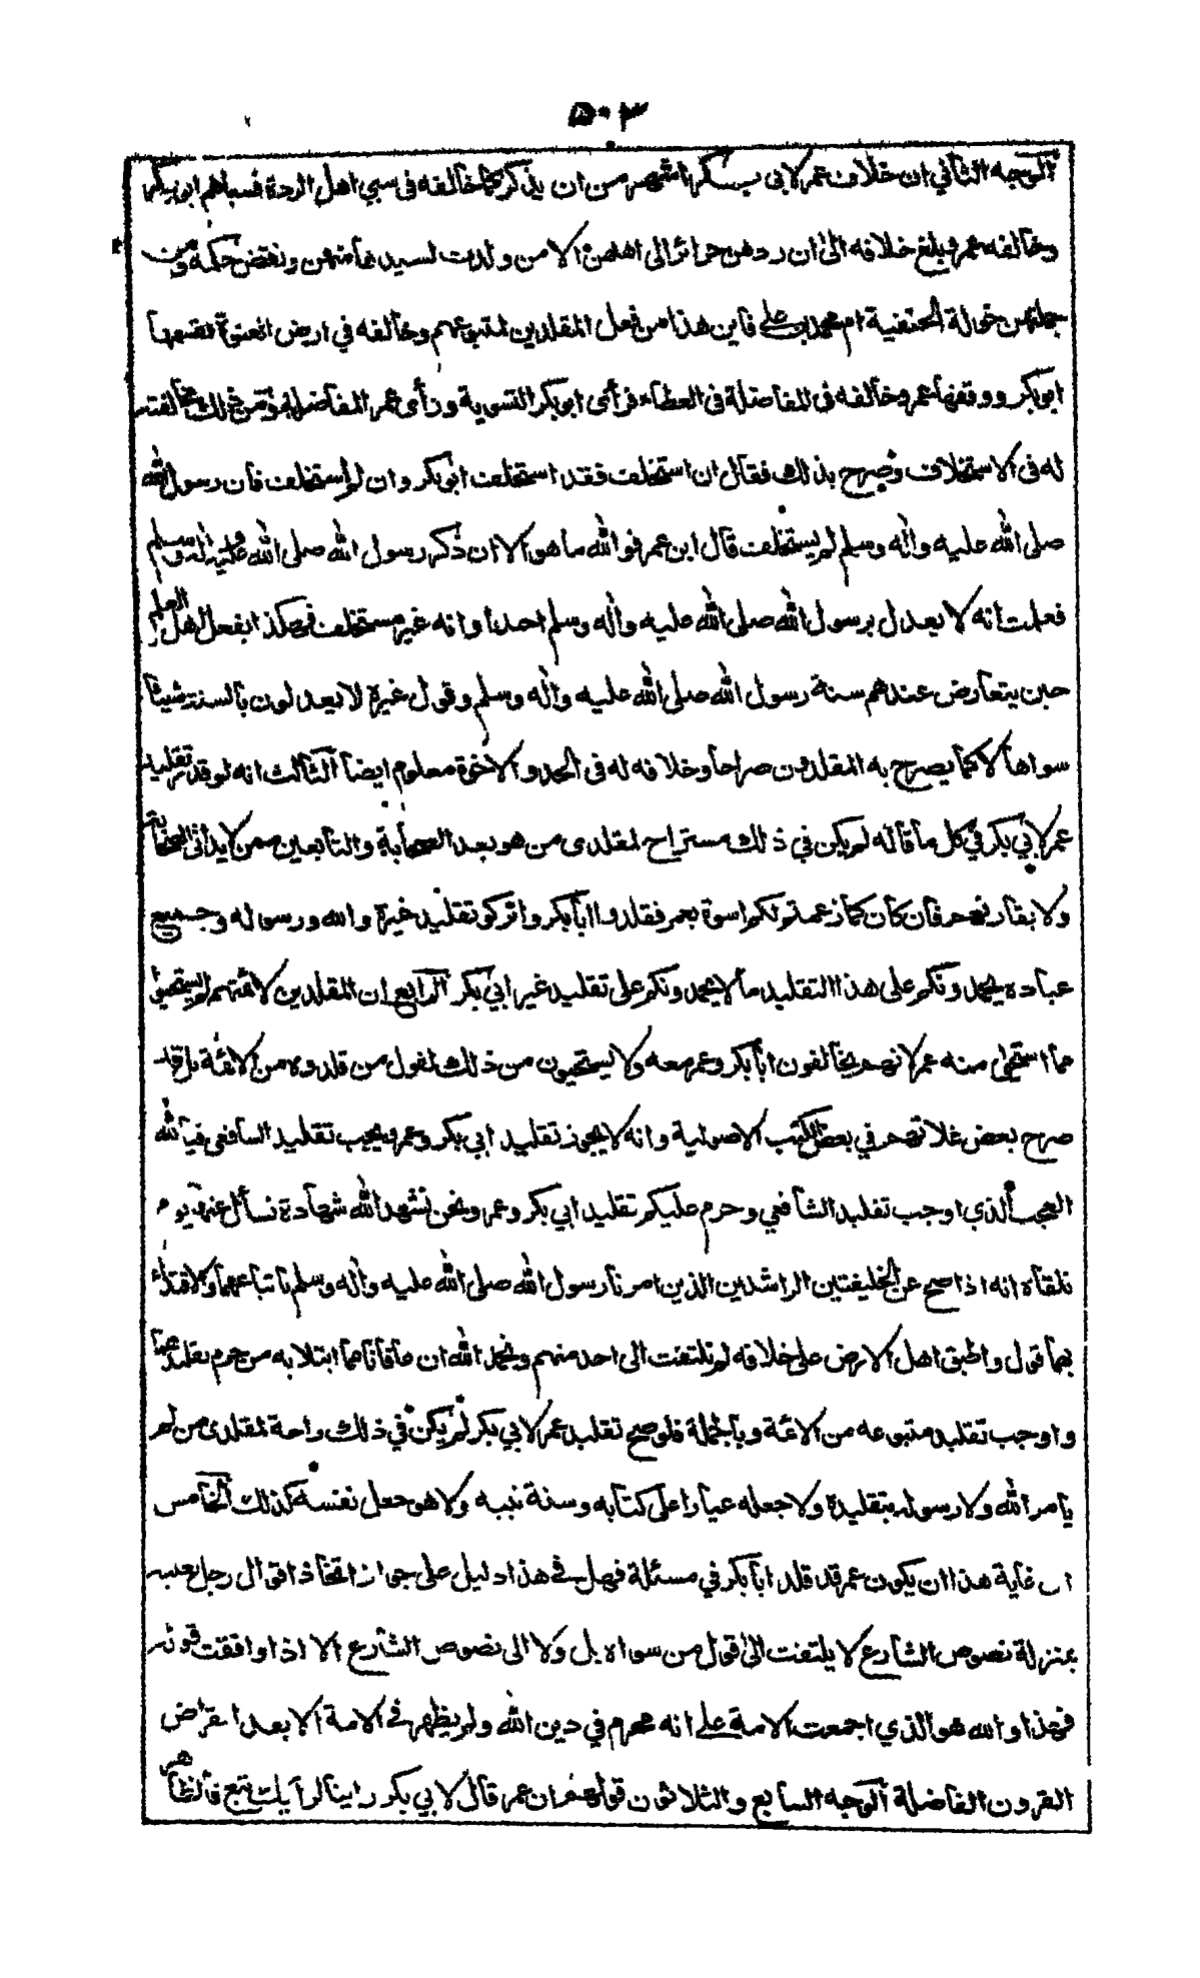 ٥٠٣
الوجه الثاني ان خلاف عمر لابي بكر اشهر من ان يذكر كما خالفه في سبي اهل الردة فسباهم ابو بكر
وخالفه عمر وبلغ خلافه الى ان ردهن حرائر الى اهلهن الا من ولدت لسيدها منهن ونقض حكمه ومن
جملتهن خولة الحنفية ام محمد بن علي فاين هذا من فعل المقلدين لمتبوعهم وخالفه في ارض العنوة فقسمها
ابو بكر ووقفها عمر وخالفه في المفاضلة في العطاء فرأى ابو بكر التسوية ورأى عمر المفاضلة ومن ذلك مخالفته
له في الاستخلاف وصرح بذلك فقال ان استخلف فقد استخلف ابو بكر وان لم استخلف فان رسول الله
صلى الله عليه واله وسلم لم يستخلف قال ابن عمر فوالله ما هو الا ان ذكر رسول الله صلى الله عليه واله وسلم
فعلمت انه لا يعدل برسول الله صلى الله عليه واله وسلم احدا وانه غير مستخلف فهكذا يفعل اهل العلم
حين يتعارض عندهم سنة رسول الله صلى الله عليه واله وسلم وقول غيره لا يعدلون بالسنة شيئا
سواها لا كما يصرح به المقلدون صراحا وخلافه له في الجد والاخوة معلوم ايضا الثالث انه لو قدر تقليد
عمر لابي بكر في كل ما قاله لم يكن في ذلك مستراح لمقلدي من هو بعد الصحابة والتابعين ممن لا يداني الصحابة
ولا يقاربهم فان كان كما زعمتم لكم اسوة بعمر فقلدوا ابا بكر واتركوا تقليد غيره والله ورسوله وجميع
عباده يحمدونكم على هذا التقليد ما لا يحمدونكم على تقليد غير ابي بكر الرابع ان المقلدين لائمتهم لم يستحيوا
مما استحيى منه عمر لانهم يخالفون ابا بكر وعمر معه ولا يستحيون من ذلك لقول من قلدوه من الائمة بل قد
صرح بعض غلاتهم في بعض الكتب الاصولية وانه لا يجوز تقليد ابي بكر وعمر ويجب تقليد الشافعي فيا لله
العجب الذي اوجب تقليد الشافعي وحرم عليكم تقليد ابي بكر وعمر ونحن نشهد الله شهادة نسأل عنها يوم
نلقاه انه اذا صح عن الخليفتين الراشدين الذين امرنا رسول الله صلى الله عليه واله وسلم باتباعهما والاقتداء
بهما قول واطبق اهل الارض على خلافه لم نلتفت الى احد منهم ونحمد الله ان عافانا مما ابتلا به من حرم تقليدهما
واوجب تقليد متبوعه من الائمة وبالجملة فلو صح تقليد عمر لابي بكر لم يكن في ذلك راحة لمقلدي من لم
يامر الله ولا رسوله بتقليده ولا جعله عيارا على كتابه وسنة نبيه ولا هو جعل نفسه كذلك الخامس
ان غاية هذا ان يكون عمر قد قلد ابا بكر في مسئلة فهل في هذا دليل على جواز اتخاذ اقوال رجل بعينه
بمنزلة نصوص الشارع لا يلتفت الى قول من سواه بل ولا الى نصوص الشارع الا اذا وافقت قوله
فهذا والله هو الذي اجمعت الامة على انه محرم في دين الله ولم يظهر في الامة الا بعد انقراض
القرون الفاضلة الوجه السابع والثلاثون قولهم ان عمر قال لابي بكر راينا لرأيك تبع فالظاهر